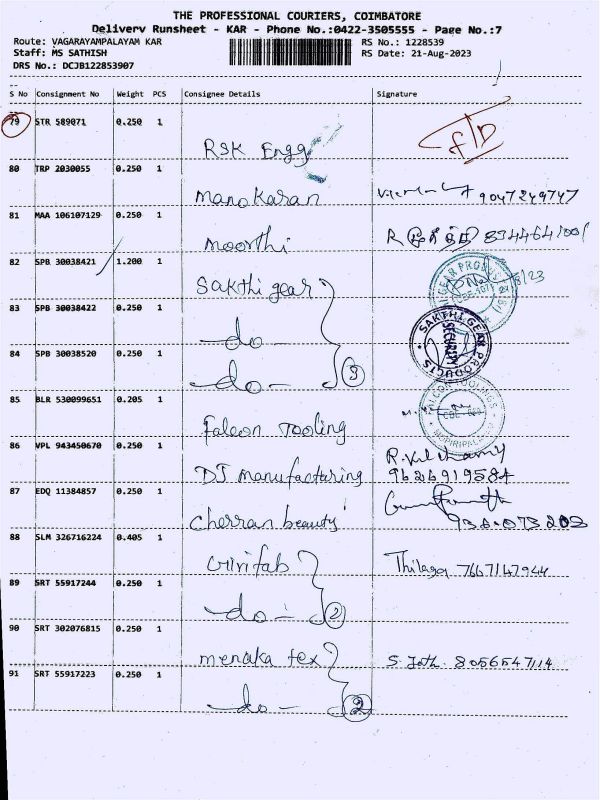 THE PROFESSIONAL COURIERS, COIMBATORE
Delivery Runsheet - KAR - Phone No.:0422-3505555 - Page No.:7
Route: VAGARAYAMPALAYAM KAR RS No.: 1228539
Staff: MS SATHISH RS Date: 21-Aug-2023
DRS No.: DCJB122853907
S No Consignment No Weight PCS Consignee Details Signature
79 STR 589071 0.250 1
RSK Engg F/D
80 TRP 2030055 0.250 1
Manokaran 9047249747
81 MAA 106107129 0.250 1
Moorthi R
82 SPB 30038421 1.200 1
Sakthi gear
83 SPB 30038422 0.250 1
do SAKTHI GEAR PRODUCTS SECURITY
84 SPB 30038520 0.250 1
do 3
85 BLR 530099651 0.205 1
Falcon Tooling
86 VPL 943450670 0.250 1
DJ manufacturing 9626919584
87 EDQ 11384857 0.250 1
Cherran beauty
88 SLM 326716224 0.405 1
Thilaga 7667147944
89 SRT 55917244 0.250 1
do 2
90 SRT 302076815 0.250 1
menaka tex 8056547114
91 SRT 55917223 0.250 1
do 2